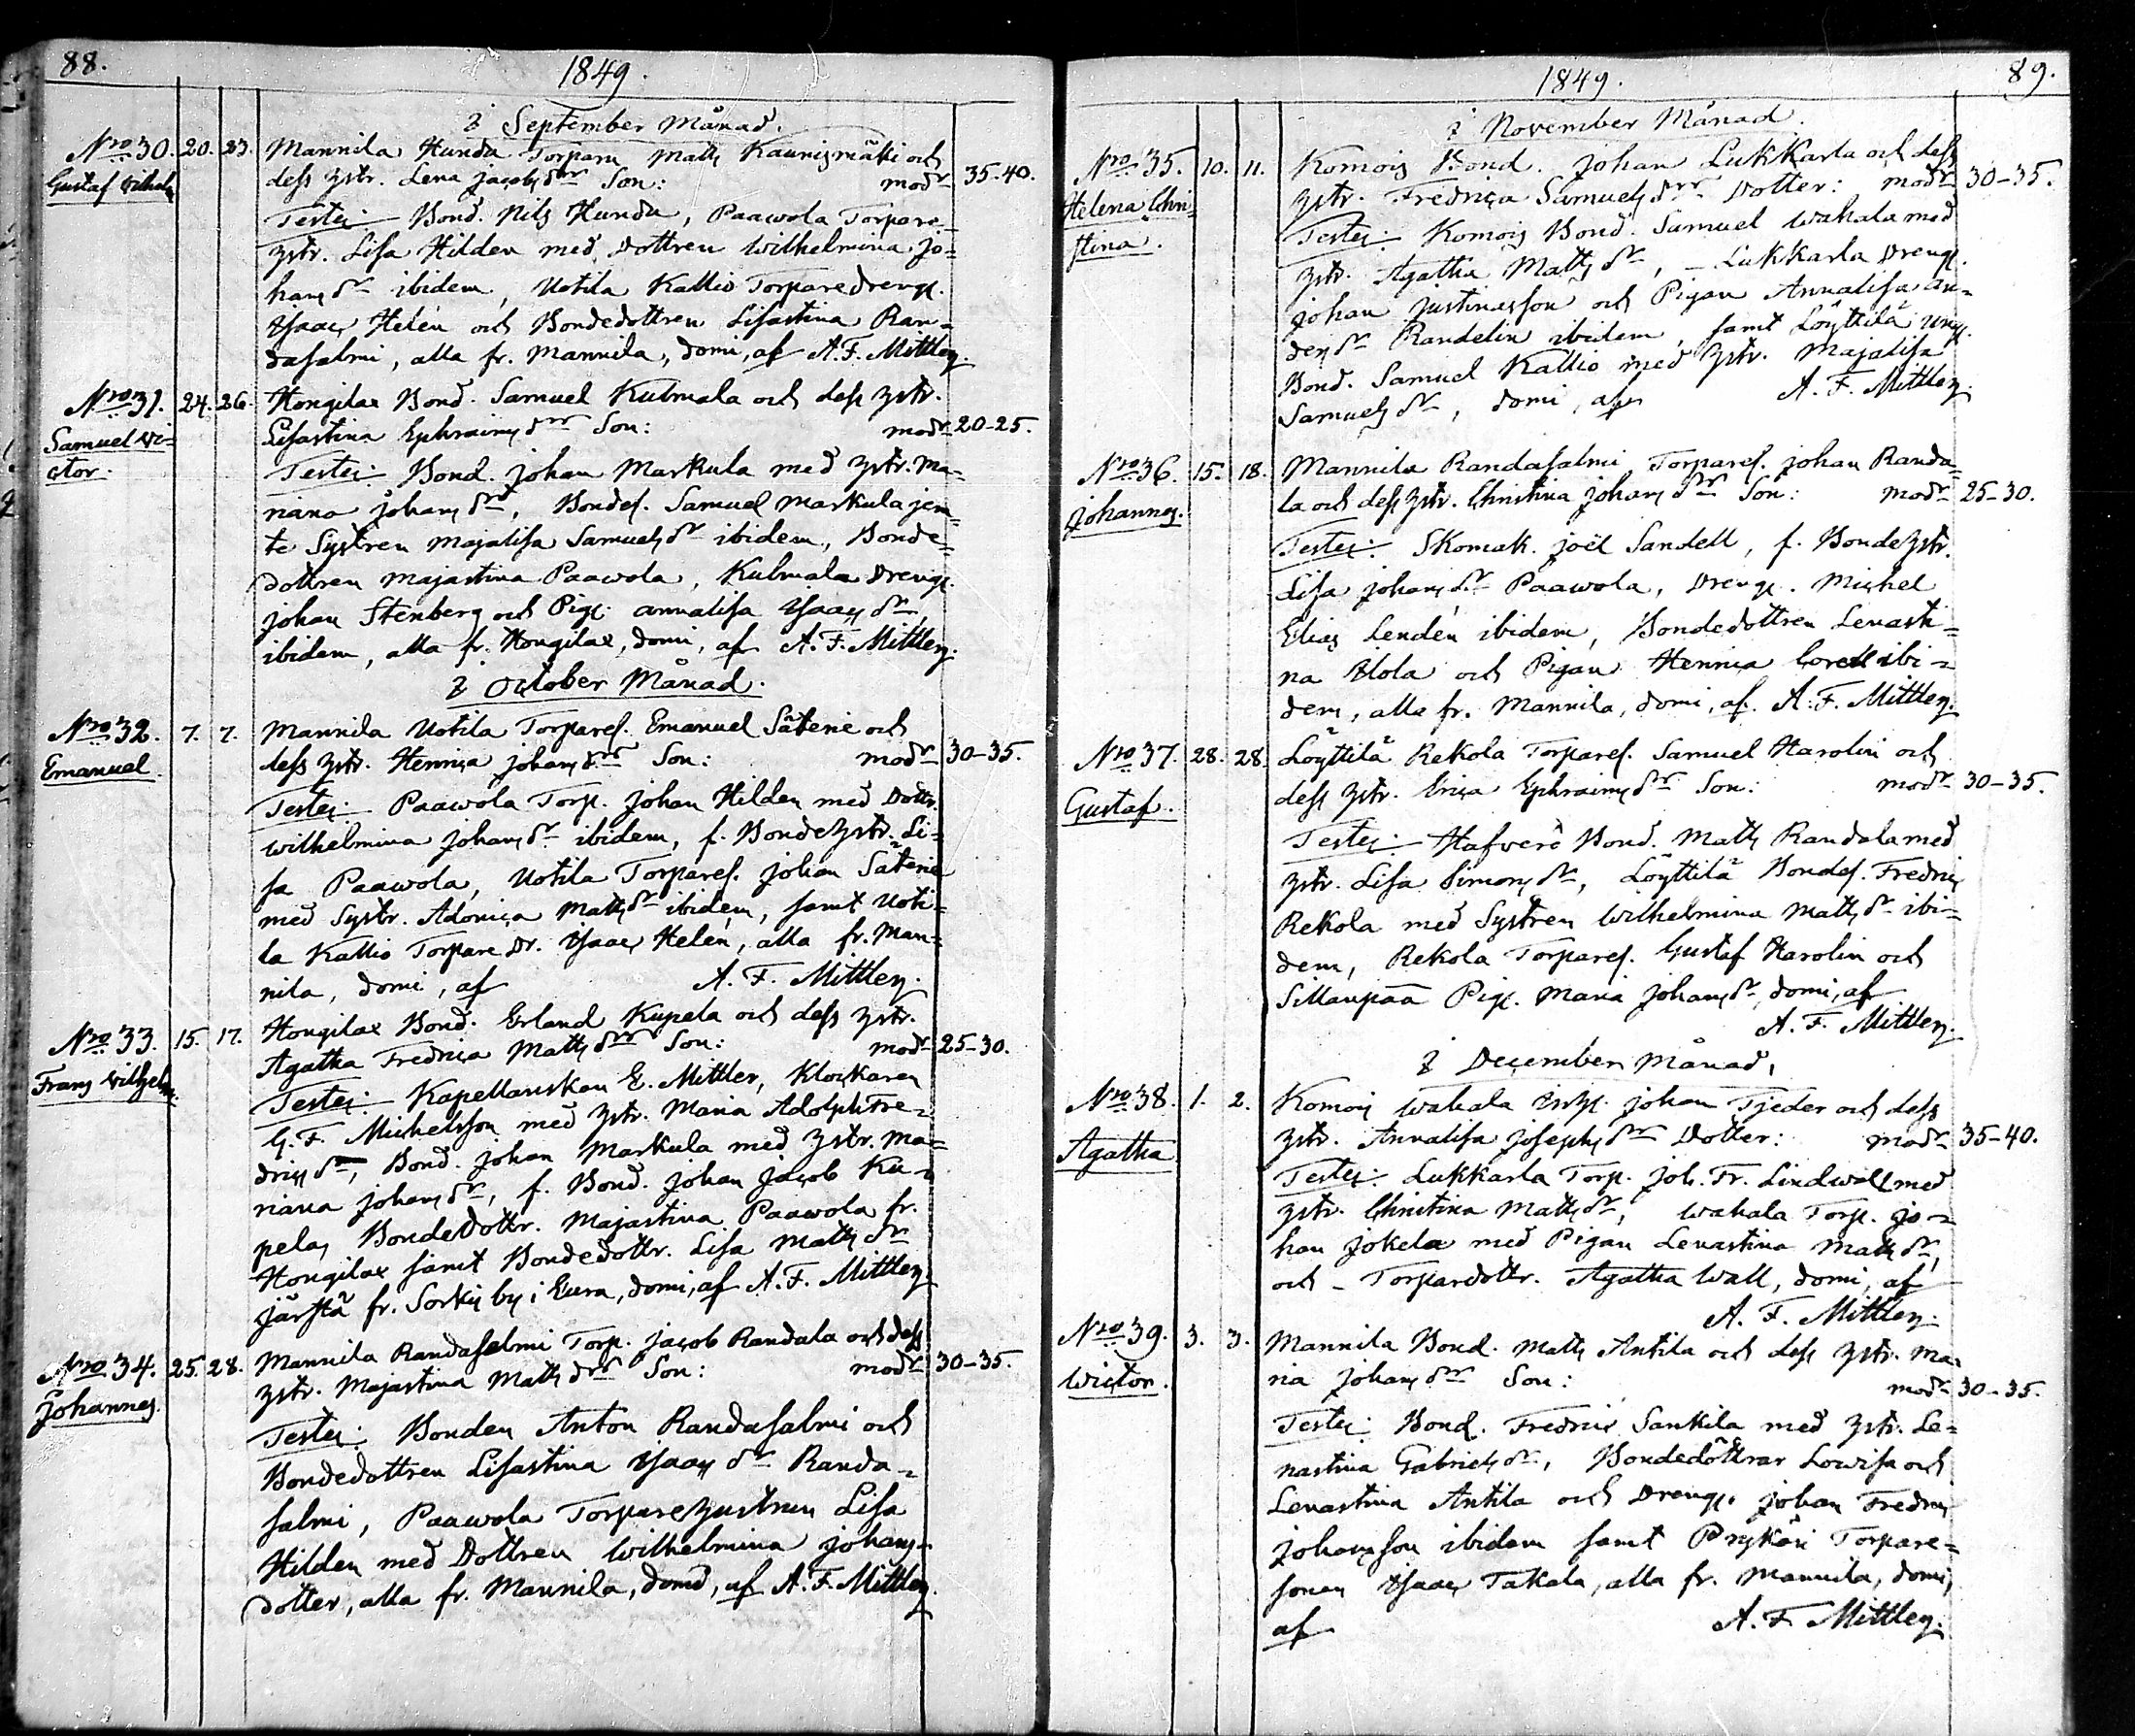 88.
1849.
I September Månad.
Nro 30. 20. 23. Mannila Hundu Torparn Matts Kaunismäki och
Gustaf Wilhelm dess hstr. Lena Jacobsdrs Son: modr 35-40.
Testes: Bond. Nils Hundu, Paawola Torpare-
hstr. Lisa Hilden med Dottren Wilhelmina Jo=
hansdr ibidem, Uotila Kallio Torparedreng.
Isaac Helén och Bondedottren Lisastina Ran=
dasalmi, alla fr. Mannila, domi, af A. F. Mittler.
Nro 31. 24. 26. Hongilax Bond. Samuel Kulmala och dess hstr.
Samuel Wi=
ctor. Lisastina Ephraimsdrs Son: modr 20-25.
Testes: Bond. Johan Markula med hstr. Ma=
riana Johansdr, Bondes. Samuel Markula jem=
te Systren Majalisa Samuelsdr ibidem, Bonde=
dottren Majastina Paawola, Kulmala Dreng.
Johan Stenberg och Pig. Annalisa Isaacsdr
ibidem, alla fr. Hongilax, domi, af A. F. Mittler.
I October Månad.
Nro 32. 7. 7. Mannila Uotila Torpares. Emanuel Säterie och
Emanuel. dess hstr. Henrica Johansdrs Son: modr 30-35.
Testes: Paawola Torp. Johan Hilden med Dottr.
Wilhelmina Johansdr ibidem, f. Bondehstr. Li=
sa Paawola, Uotila Torpares. Johan Säterie
med Systr. Adonica Mattsdr ibidem, samt Uoti=
la Kallio Torpare Dr. Isaac Helén, alla fr. Man=
nila, domi, af A. F. Mittler.
Nro 33. 15. 17. Hongilax Bond. Erland Kupela och dess hstr.
Frans Wilhelm. Agatha Fredrica Mattsdrs Son: modr 25-30.
Testes: Kapellanskan E. Mittler, Klockaren
G. F. Michelsson med hstr. Maria Adolph Fre=
dricsdr, Bond. Johan Markula med hstr. Ma=
riana Johansdr, f. Bond. Johan Jacob Ku=
pela, Bondedottr. Majastina Paawola fr.
Hongilax samt Bondedottr. Lisa Mattsdr
Järstä fr. Sorkis by i Eura, domi, af A. F. Mittler.
Nro 34. 25. 28. Mannila Randasalmi Torp. Jacob Randala och dess
Johannes. hstr. Majastina Mattsdrs Son: modr 30-35.
Testes: Bonden Anton Randasalmi och
Bondedottren Lisastina Isaacsdr Randa=
salmi, Paawola Torparehustrun Lisa
Hilden med Dottren Wilhelmina Johans=
dotter, alla fr. Mannila, domi, af A. F. Mittler.
1849.
89.
I November Månad.
Nro 35. 10. 11. Komois Bond. Johan Lukkarla och dess
Helena Chri=
stina. hstr. Fredrica Samuelsdrs Dotter: modr 30-35.
Testes: Komois Bond. Samuel Wahala med
hstr. Agatha Mattsdr, - Lukkarla Dreng.
Johan Justinasson och Pigan Annalisa An=
dersdr Randelin ibidem, samt Löyttilä Ung.
Bond. Samuel Kallio med hstr. Majalisa
Samuelsdr, domi, af A. F. Mittler.
Nro 36. 15. 18. Mannila Randasalmi Torpares. Johan Randa=
Johannes. la och dess hstr. Christina Johansdrs Son: modr 25-30.
Testes: Skomak. Joël Sandell, f. Bondehstr.
Lisa Johansdr Paawola, Dreng. Michel
Elias Lendén ibidem, Bondedottren Lenasti=
na Ilola och Pigan Henrica Corell ibi=
dem, alla fr. Mannila, domi, af A. F. Mittler.
Nro 37. 28. 28. Löyttilä Rekola Torpares. Samuel Harolin och
Gustaf. dess hstr. Erica Ephraimsdrs Son: modr 30-35.
Testes: Hafverö Bond. Matts Randala med
hstr. Lisa Simonsdr, Löyttilä Bondes. Fredric
Rekola med Systren Wilhelmina Mattsdr ibi=
dem, Rekola Torpares. Gustaf Harolin och
Sillanpää Pig. Maria Johansdr, domi, af
A. F. Mittler.
I December Månad.
Nro 38. 1. 2. Komois Wahala Johan Tjeder och dess
Agatha hstr. Annalisa Josephsdrs Dotter: modr 35-40.
Testes: Lukkarla Torp. Joh. Fr. Lindwall med
hstr. Christina Mattsdr, Wahala Torp. Jo=
han Jokela med Pigan Lenastina Mattsdr,
och - Torpardottr. Agatha Wall, domi, af
A. F. Mittler.
Nro 39. 3. 3. Mannila Bond. Matts Antila och dess hstr. Ma=
Wictor. ria Johansdrs Son: modr 30-35.
Testes: Bond. Fredric Sankila med hstr. Le=
nastina Gabrielsdr, Bondedöttrar Lowisa och
Lenastina Antila och Dreng. Johan Fredric
Johansson ibidem samt Prykäri Torpare=
sonen Isaac Takala, alla fr. Mannila, domi,
af A. F. Mittler.